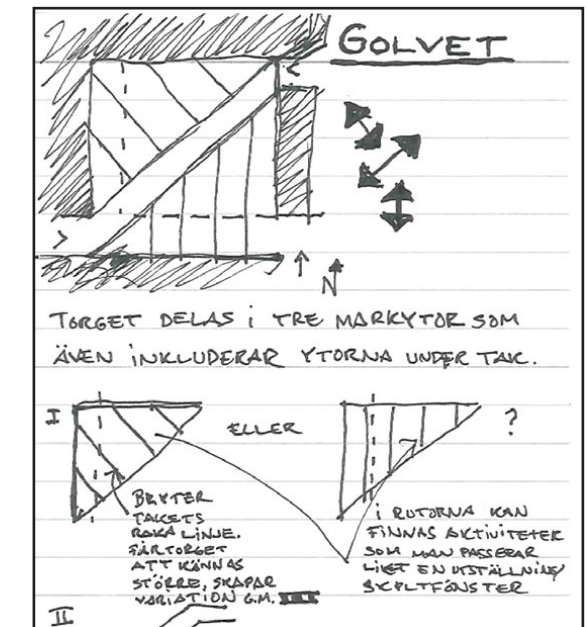 GOLVET
N
TORGET DELAS I TRE MARKYTOR SOM
ÄVEN INKLUDERAR YTORNA UNDER TAK.
I
ELLER
?
BRYTER
TAKETS
RAKA LINJE.
FÅR TORGET
ATT KÄNNAS
STÖRRE, SKAPAR
VARIATION G.M.
I RUTORNA KAN
FINNAS AKTIVITETER
SOM MAN PASSERAR
LIKT EN UTSTÄLLNING/
SKYLTFÖNSTER
II